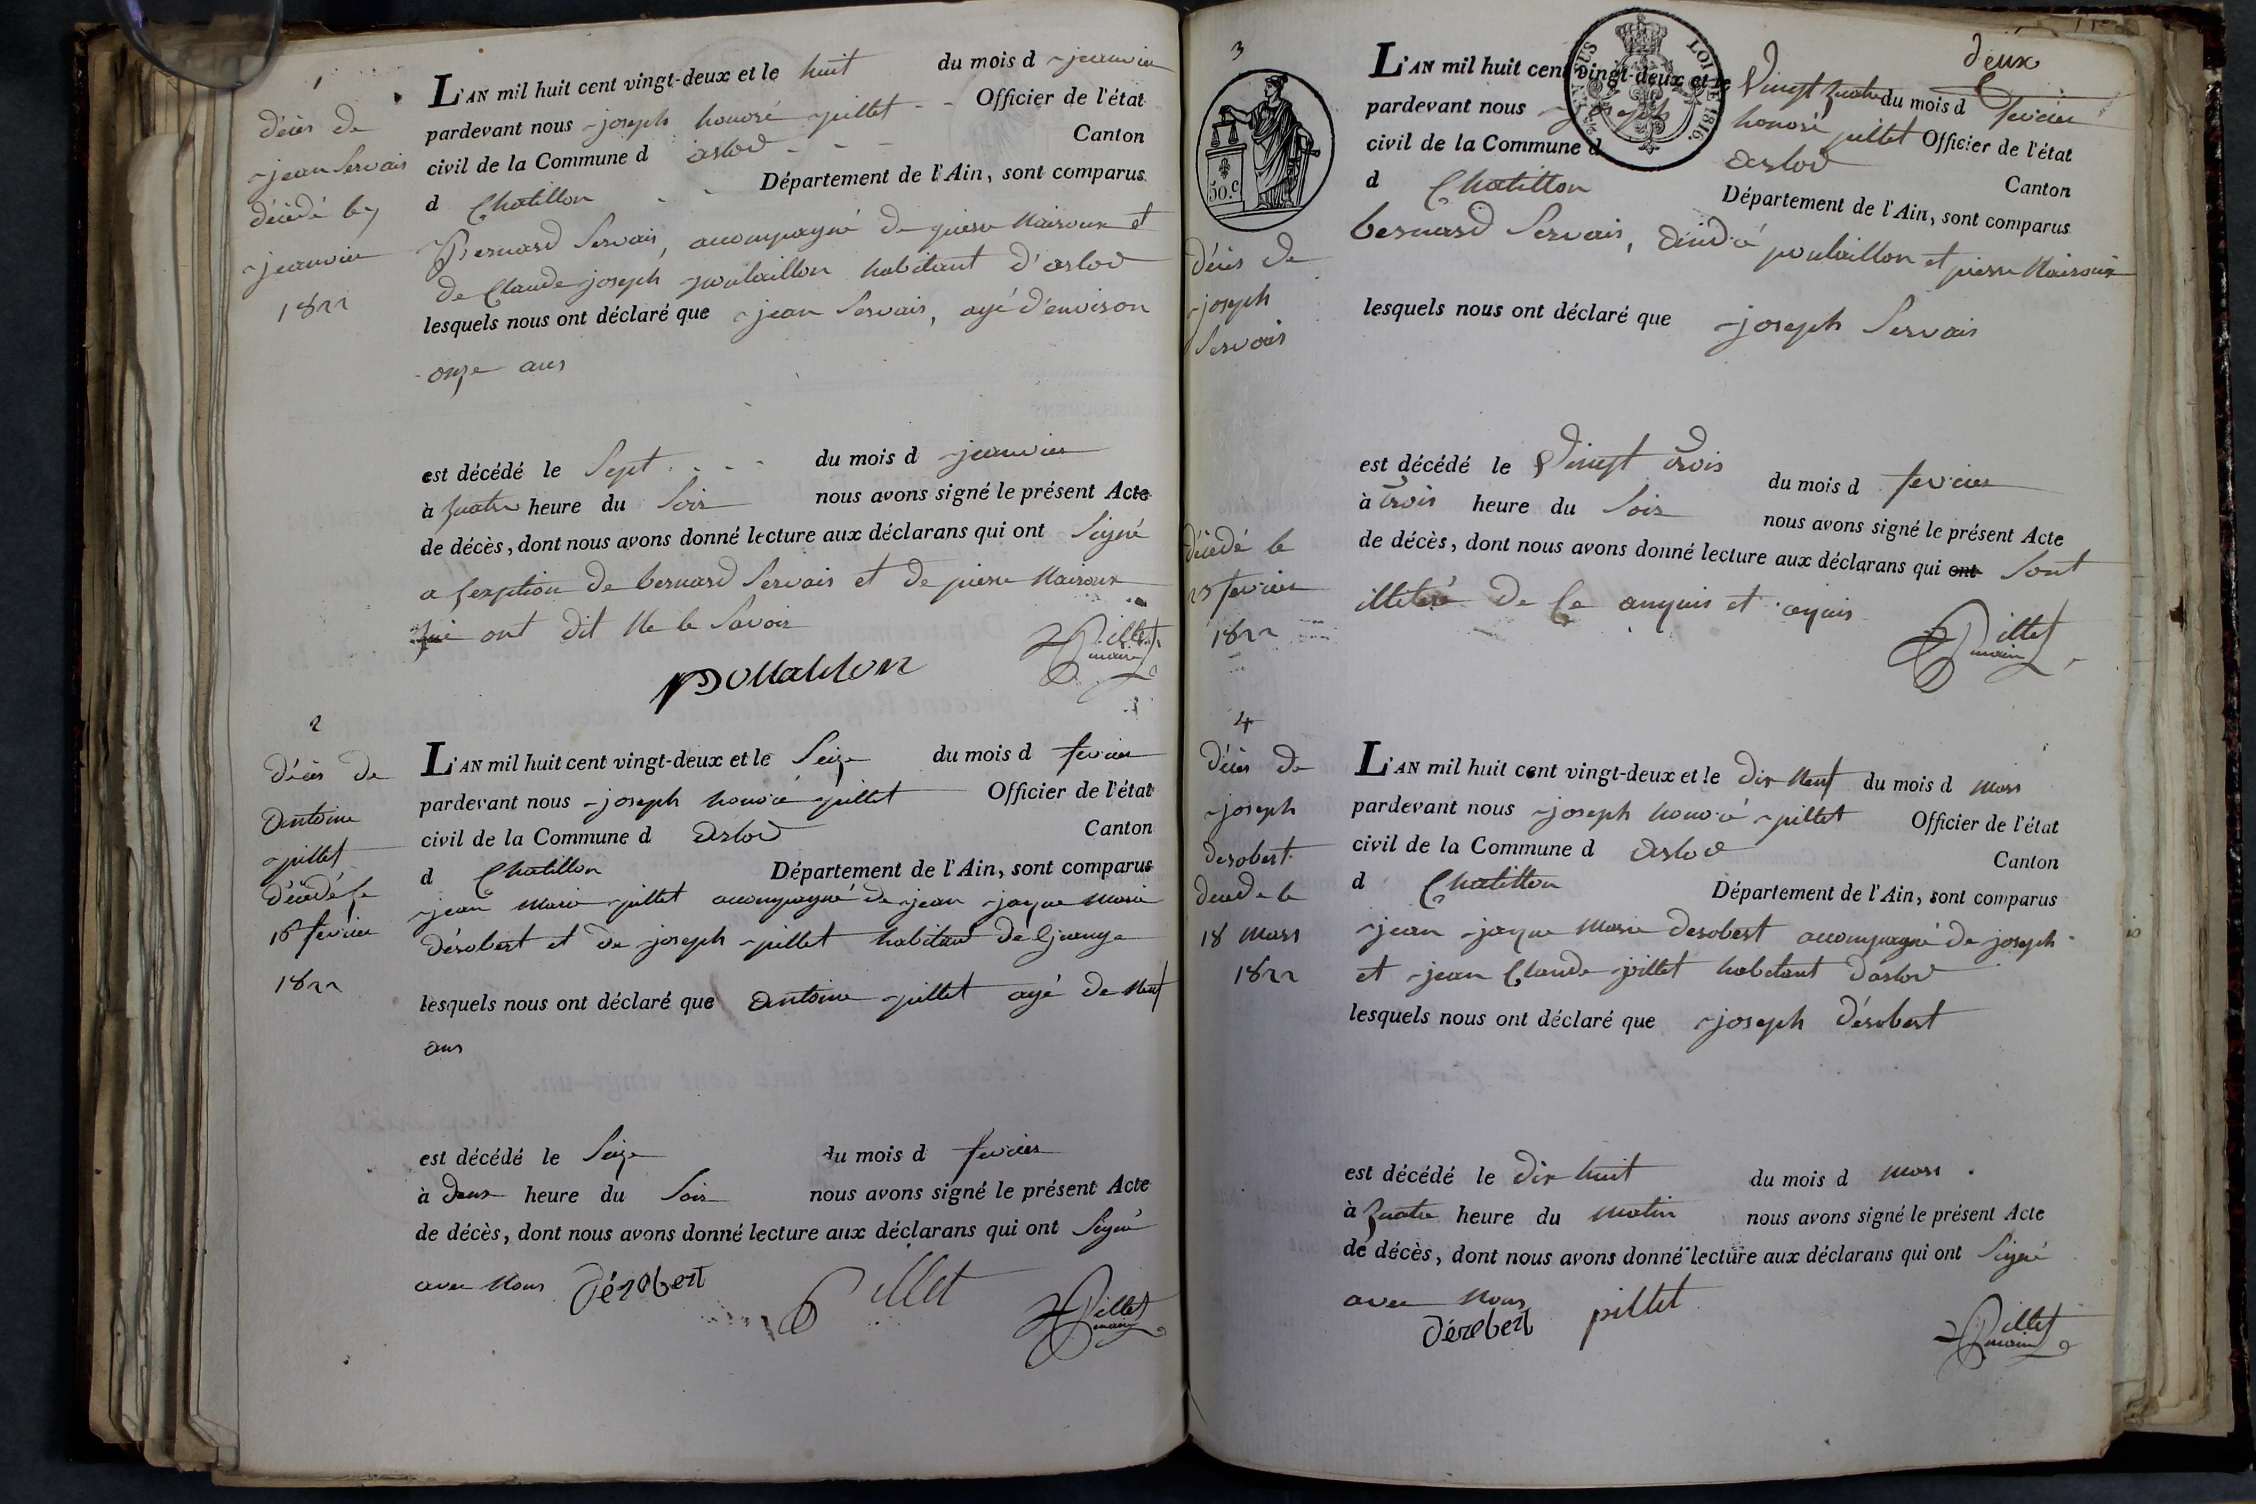 1
décès de
jean Servais
décédé le 7
jeanvier
1822
L'AN mil huit cent vingt-deux et le huit du mois d jeanvier
pardevant nous joseph honoré pillet Officier de l'état
civil de la Commune d arlod Canton
d Chatillon Département de l'Ain, sont comparus
Bernard Servais, accompagné de pierre Mairoux et
de Claude joseph poulaillon habitant d'arlod
lesquels nous ont déclaré que jean Servais, agé d'environ
onze ans
est décédé le Sept du mois d jeanvier
à quatre heure du Soir nous avons signé le présent Acte
de décès, dont nous avons donné lecture aux déclarans qui ont Signé
a l'exption de bernard Servais et de pierre Mairoux
qui ont dit Ne le Savoir
Pillet
maire
2
décès de
Antoine
pillet
décédé le
16 fevrier
1822
L'AN mil huit cent vingt-deux et le Seize du mois d fevrier
pardevant nous joseph honoré pillet Officier de l'état
civil de la Commune d Arlod Canton
d Chatillon Département de l'Ain, sont comparus
jean marie pillet accompagné de jean jaque marie
dérobert et de joseph pillet habitant
lesquels nous ont déclaré que Antoine pillet agé de Neuf
ans
est décédé le Seize du mois d fevrier
à deux heure du Soir nous avons signé le présent Acte
de décès, dont nous avons donné lecture aux déclarans qui ont Signé
avec Nous dérobert Pillet
Pillet
maire
deux
3
50 c
LOI DE 1816.
décès de
joseph
Servais
décédé le
23 fevrier
1822
L'AN mil huit cent vingt-deux et le Vingt quatre du mois d fevrier
pardevant nous joseph honoré pillet Officier de l'état
civil de la Commune d Arlod Canton
d Chatillon Département de l'Ain, sont comparus
bernard Servais, poulaillon et pierre Mairoux
lesquels nous ont déclaré que joseph Servais
est décédé le Vingt trois du mois d fevrier
à trois heure du Soir nous avons signé le présent Acte
de décès, dont nous avons donné lecture aux déclarans qui ont Sont
illeteré de ce enquis et
Pillet
maire
4
décès de
joseph
derobert
decede le
18 mars
1822
L'AN mil huit cent vingt-deux et le dix Neuf du mois d mars
pardevant nous joseph honoré pillet Officier de l'état
civil de la Commune d Arlod Canton
d Chatillon Département de l'Ain, sont comparus
jean jaque Marie derobert accompagné de joseph
et jean Claude pillet habitant d'arlod
lesquels nous ont déclaré que joseph dérobert
est décédé le dix huit du mois d mars
à quatre heure du matin nous avons signé le présent Acte
de décès, dont nous avons donné lecture aux déclarans qui ont Signé
avec Nous
dérobert pillet
Pillet
maire